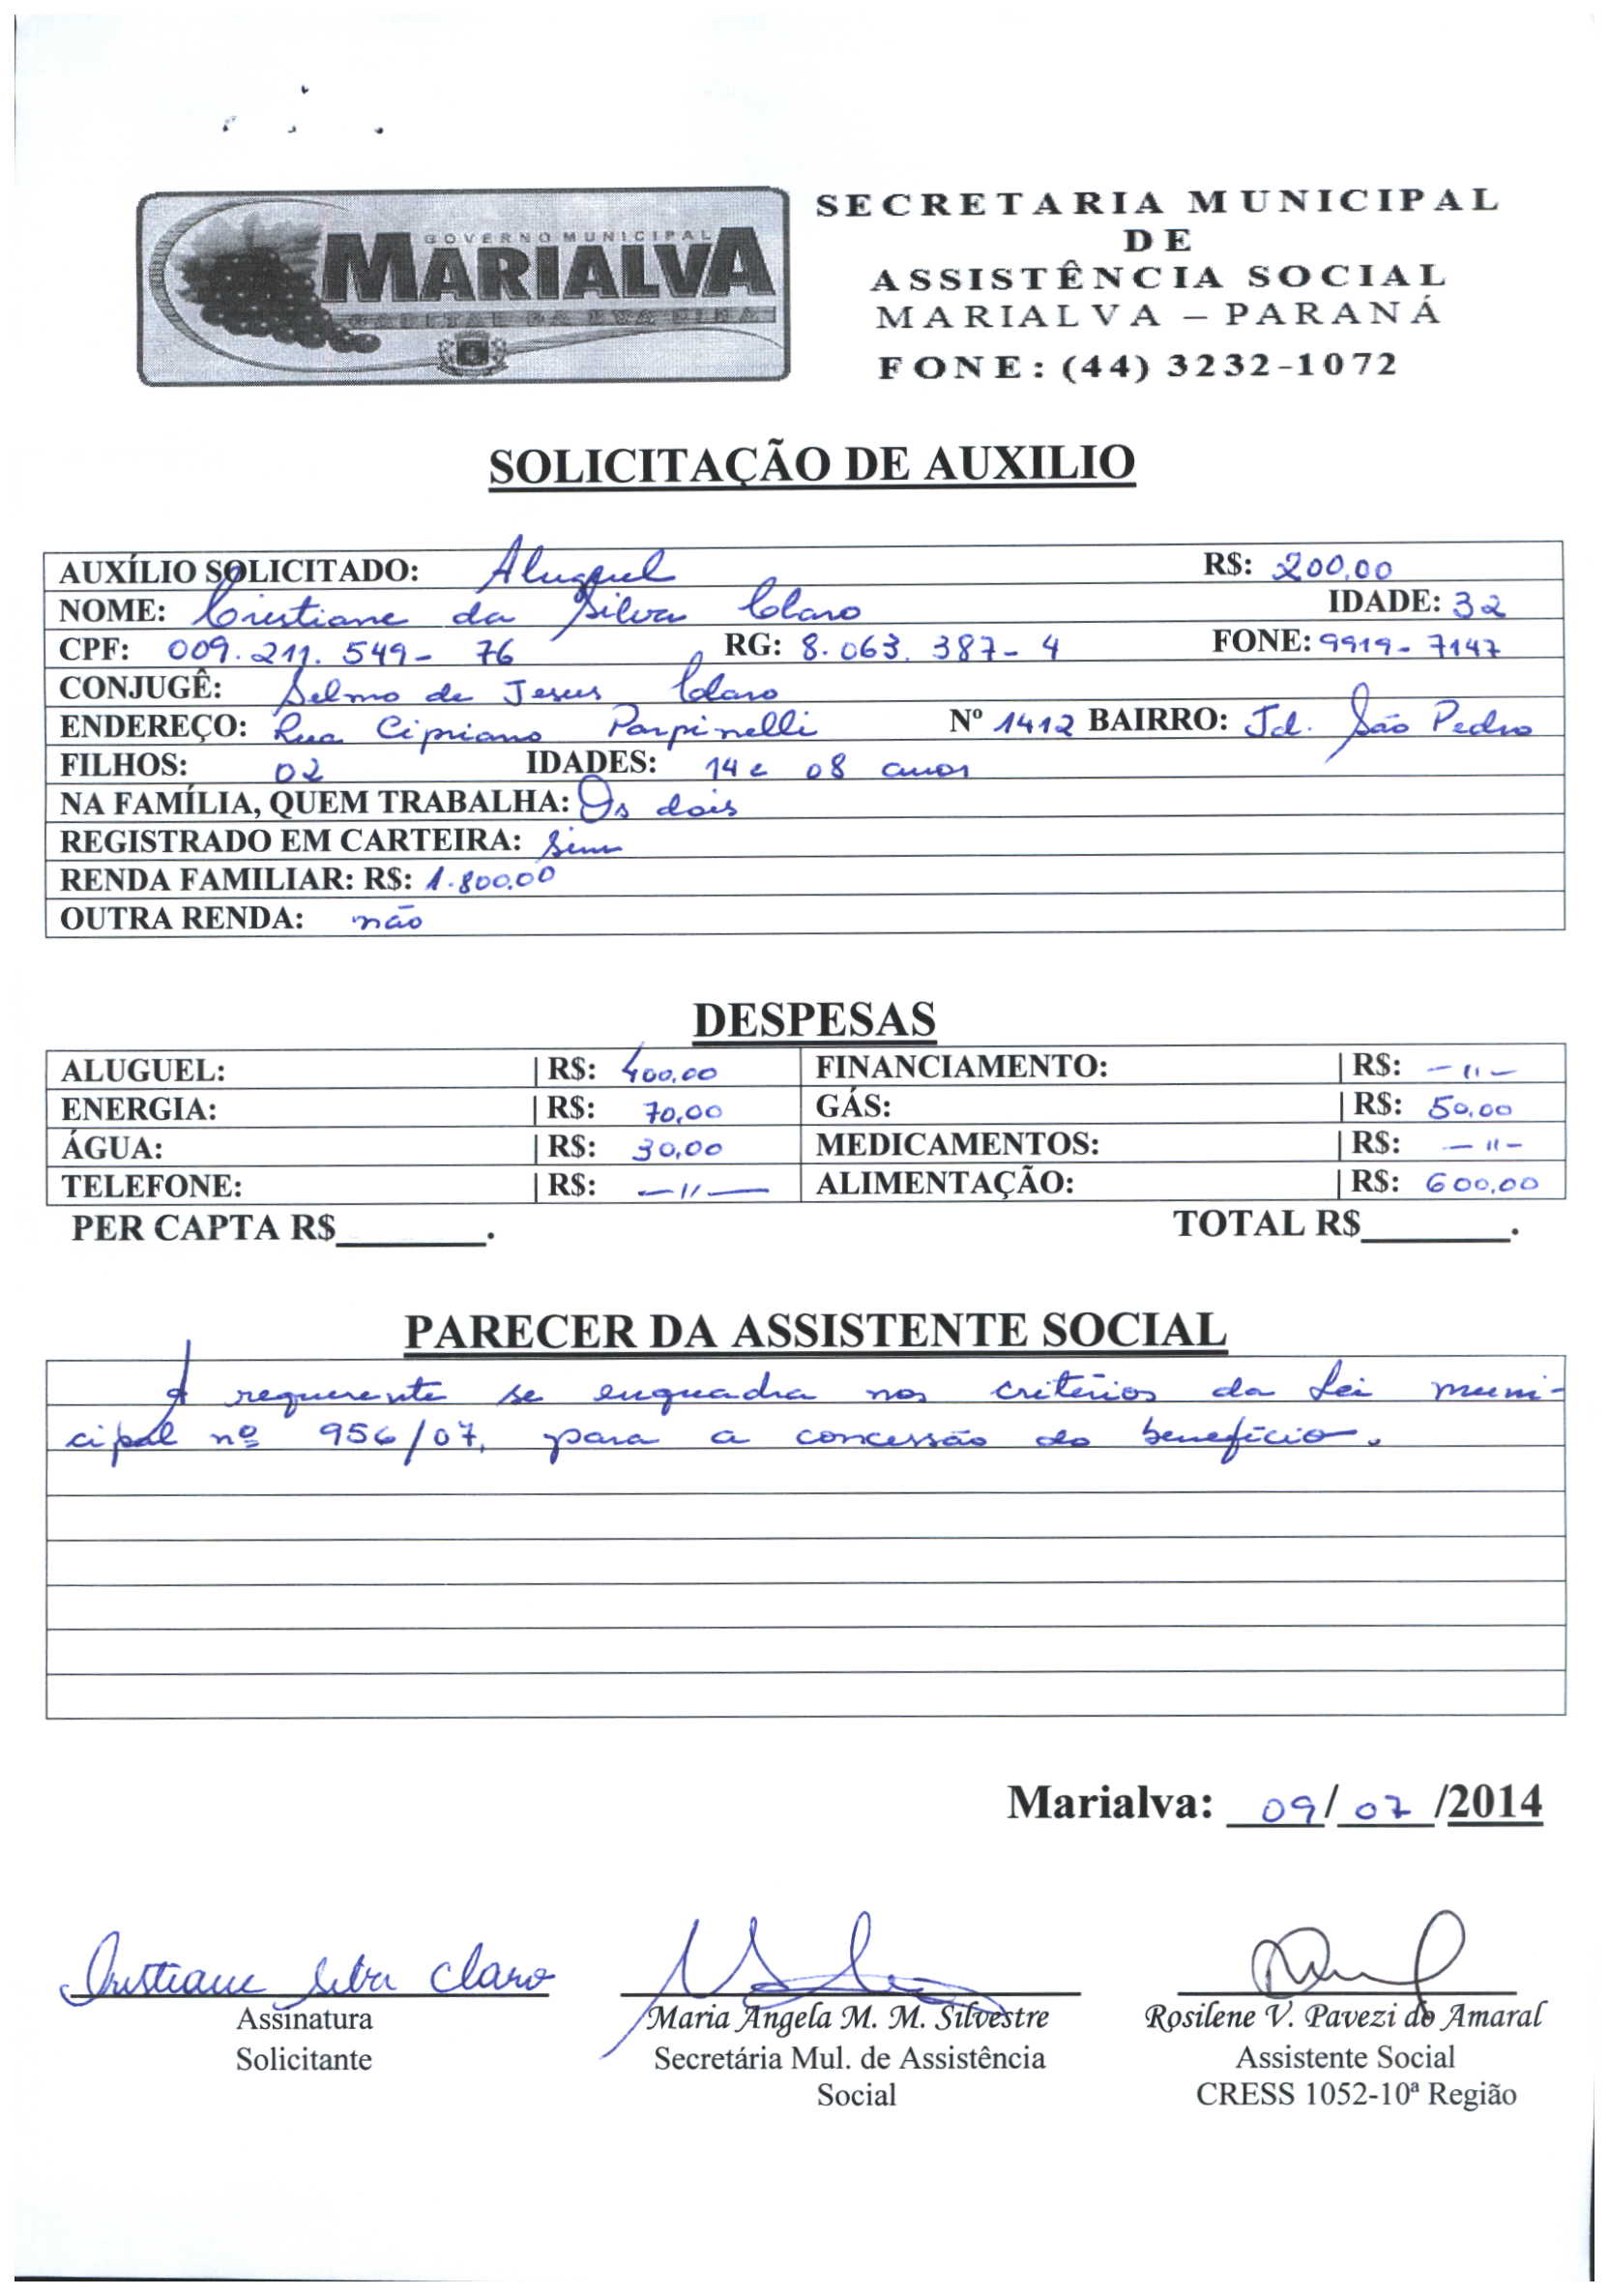 SECRETARIA MUNICIPAL
DE
ASSISTÊNCIA SOCIAL
MARIALVA – PARANÁ
FONE: (44) 3232-1072
GOVERNO MUNICIPAL
MARIALVA
CAPITAL DA UVA FINA
SOLICITAÇÃO DE AUXILIO
AUXÍLIO SOLICITADO: Aluguel R$: 200,00
NOME: Cristiane da Silva Claro IDADE: 32
CPF: 009.211.549-76 RG: 8.063.387-4 FONE: 9919-7147
CONJUGÊ: Selmo de Jesus Claro
ENDEREÇO: Rua Cipriano Parpinelli Nº 1412 BAIRRO: Jd. São Pedro
FILHOS: 02 IDADES: 14 e 08 anos
NA FAMÍLIA, QUEM TRABALHA: Os dois
REGISTRADO EM CARTEIRA: Sim
RENDA FAMILIAR: R$: 1.800,00
OUTRA RENDA: não
DESPESAS
ALUGUEL: | R$: 400,00 FINANCIAMENTO: | R$: — 11 —
ENERGIA: | R$: 70,00 GÁS: | R$: 50,00
ÁGUA: | R$: 30,00 MEDICAMENTOS: | R$: — 11 —
TELEFONE: | R$: — 11 — ALIMENTAÇÃO: | R$: 600,00
PER CAPTA R$_______. TOTAL R$_______.
PARECER DA ASSISTENTE SOCIAL
A requerente se enquadra nos critérios da Lei muni-
cipal nº 956/07, para a concessão do benefício.
Marialva: 09/07/2014
Cristiane Silva Claro
Assinatura
Solicitante
Maria Ângela M. M. Silvestre
Secretária Mul. de Assistência
Social
Rosilene V. Pavezi do Amaral
Assistente Social
CRESS 1052-10ª Região